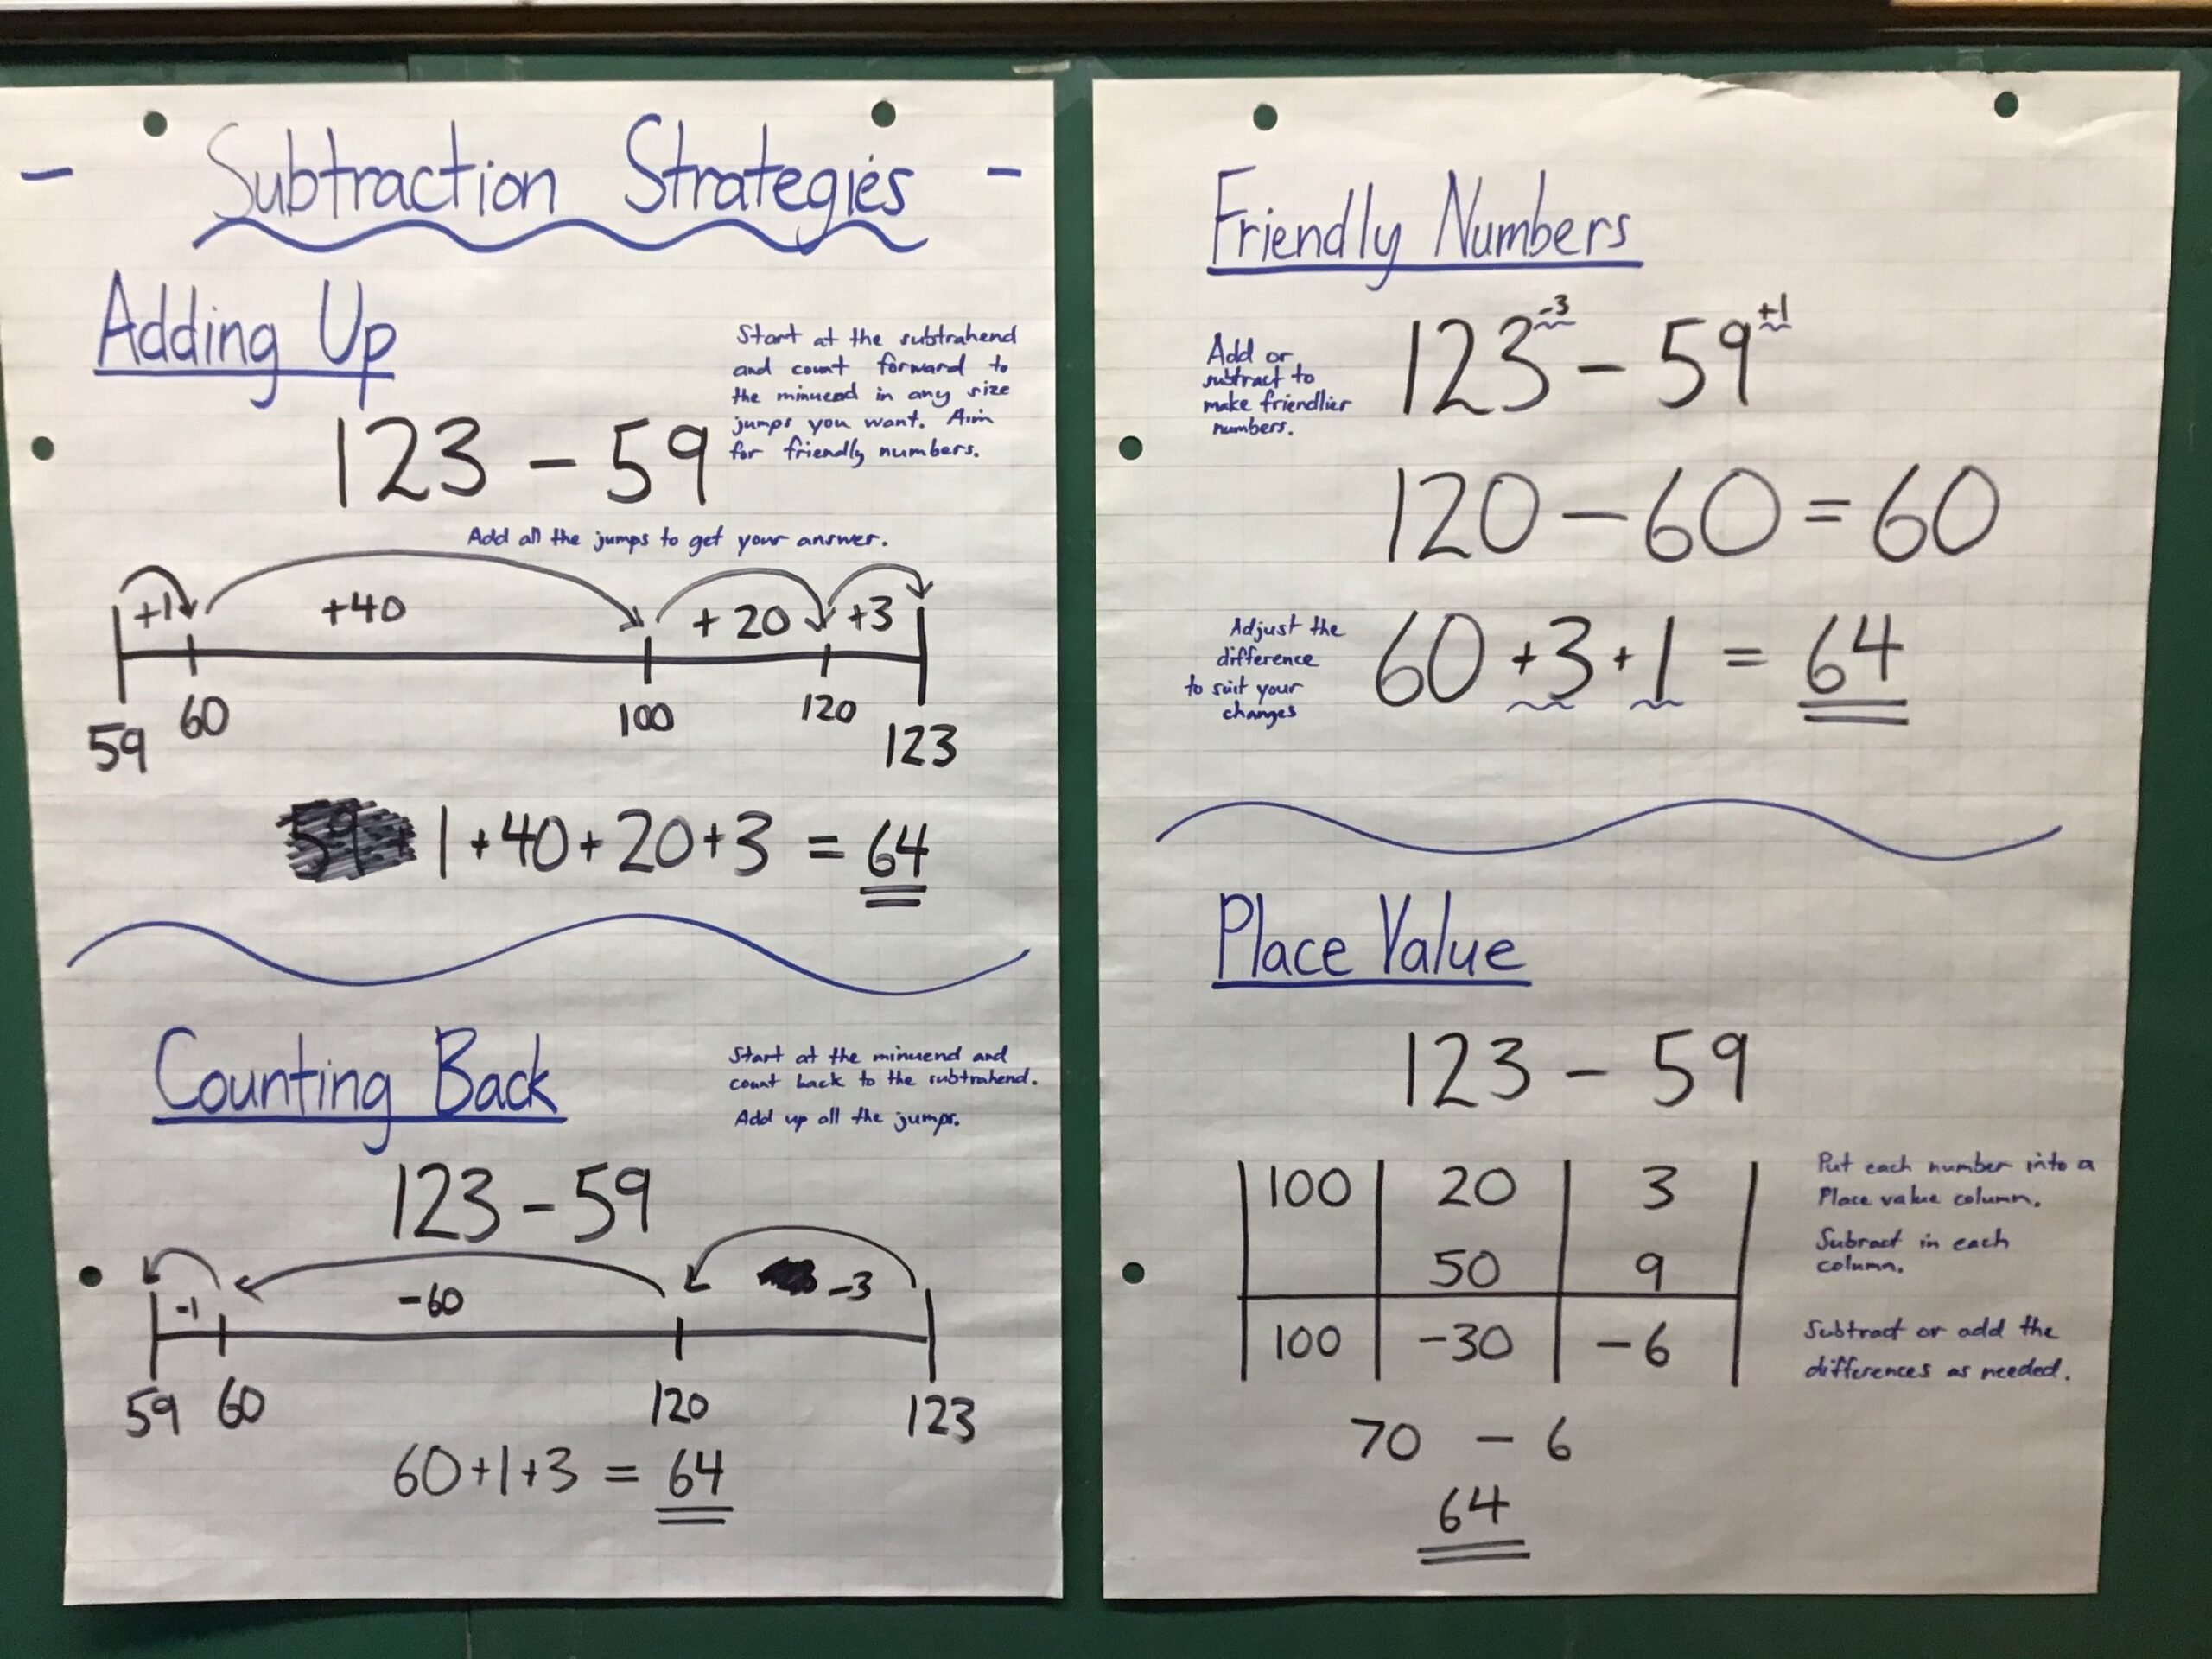 - Subtraction Strategies -
Adding Up
Start at the subtrahend
and count forward to
the minuend in any size
jumps you want. Aim
for friendly numbers.
123 - 59
Add all the jumps to get your answer.
+1 +40 + 20 +3
59 60 100 120 123
59 + 1 + 40 + 20 + 3 = 64
Counting Back
Start at the minuend and
count back to the subtrahend.
Add up all the jumps.
123 - 59
-1 -60 -3
59 60 120 123
60 + 1 + 3 = 64
Friendly Numbers
Add or
subtract to
make friendlier
numbers.
123 -3 - 59 +1
120 - 60 = 60
Adjust the
difference
to suit your
changes
60 + 3 + 1 = 64
Place Value
123 - 59
100 20 3
50 9
100 -30 -6
Put each number into a
Place value column.
Subract in each
column.
Subtract or add the
differences as needed.
70 - 6
64